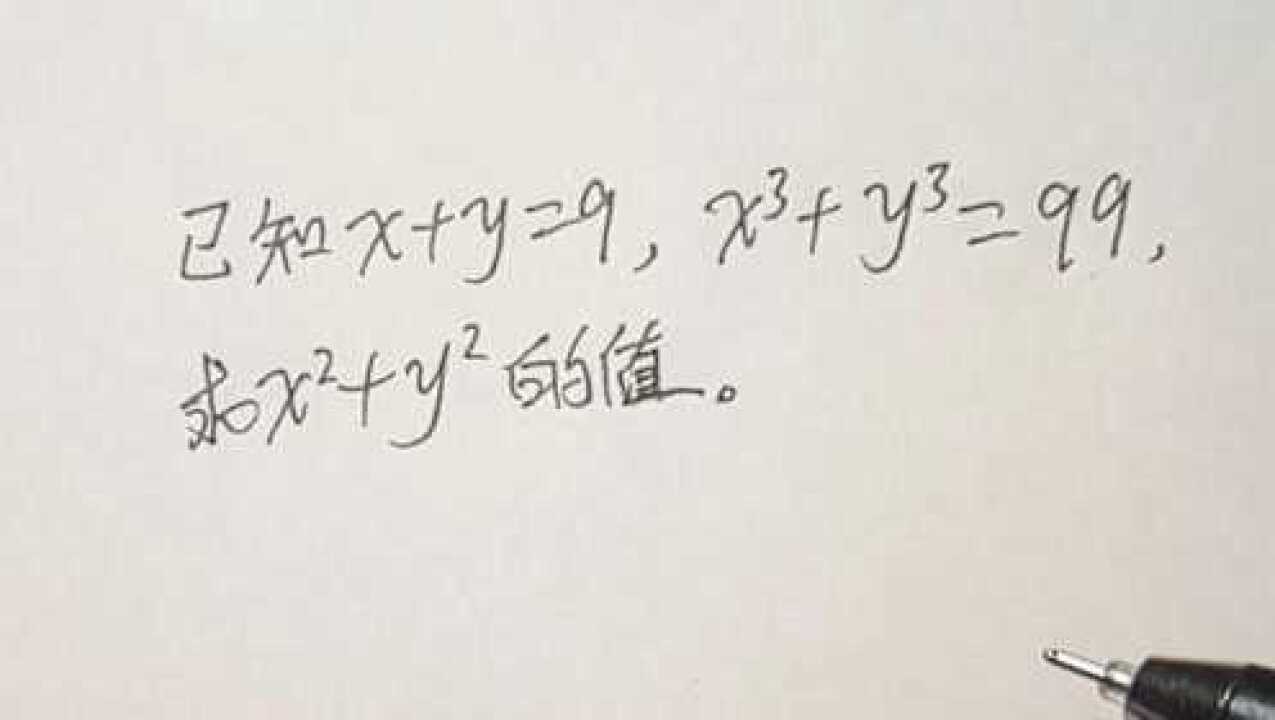 已知x+y=9, x³+y³=99,
求x²+y²的值。